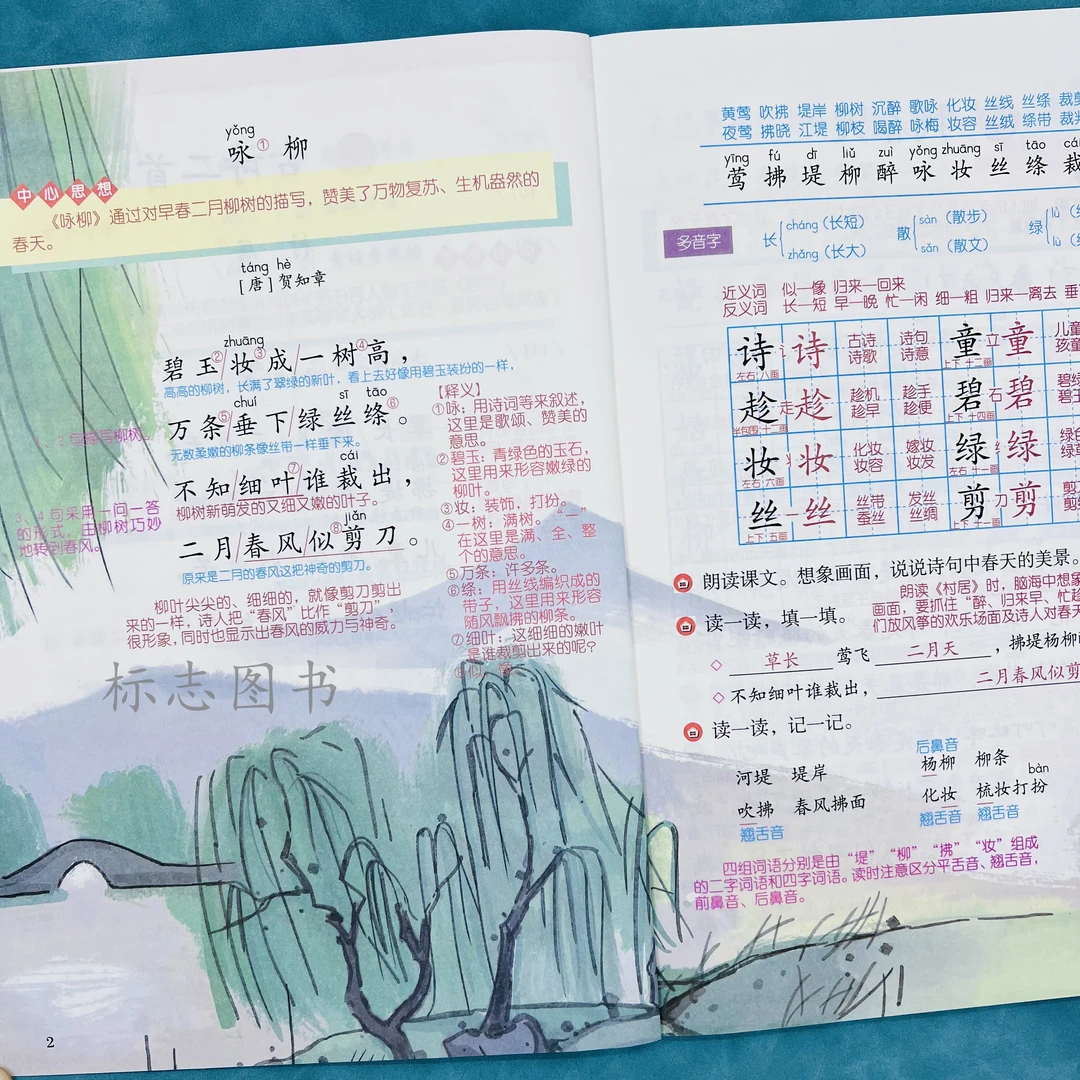 yǒng
咏① 柳
中心思想
《咏柳》通过对早春二月柳树的描写，赞美了万物复苏、生机盎然的
春天。
táng hè
［唐］贺知章
zhuāng
碧玉②/妆③成/一树④高，
高高的柳树，长满了翠绿的新叶，看上去好像用碧玉装扮的一样，
chuí sī tāo
万条⑤/垂下/绿丝绦⑥。
无数柔嫩的柳条像丝带一样垂下来。
cái
不知/细叶⑦/谁裁出，
柳树新萌发的又细又嫩的叶子。
jiǎn
二月/春风/似⑧剪刀。
原来是二月的春风这把神奇的剪刀。
1、2句描写柳树。
3、4句采用一问一答
的形式，由柳树巧妙
地转到春风。
柳叶尖尖的、细细的，就像剪刀剪出
来的一样，诗人把“春风”比作“剪刀”，
很形象，同时也显示出春风的威力与神奇。
【释义】
①咏：用诗词等来叙述，
这里是歌颂、赞美的
意思。
②碧玉：青绿色的玉石，
这里用来形容嫩绿的
柳叶。
③妆：装饰，打扮。
④一树：满树。“一”
在这里是满、全、整
个的意思。
⑤万条：许多条。
⑥绦：用丝线编织成的
带子，这里用来形容
随风飘拂的柳条。
⑦细叶：这细细的嫩叶
是谁裁剪出来的呢？
⑧似：像。
标志图书
2
黄莺 吹拂 堤岸 柳树 沉醉 歌咏 化妆 丝线 丝绦 裁剪
夜莺 拂晓 江堤 柳枝 喝醉 咏梅 妆容 丝绒 绦带 裁判
yīng fú dī liǔ zuì yǒng zhuāng sī tāo cái
莺 拂 堤 柳 醉 咏 妆 丝 绦 裁
多音字
长 cháng（长短） zhǎng（长大）
散 sàn（散步） sǎn（散文）
绿 lǜ lù
近义词 似—像 归来—回来
反义词 长—短 早—晚 忙—闲 细—粗 归来—离去 垂
诗 讠诗 古诗 诗句 诗歌 诗意 左右 八画
童 立童 儿童 孩童 上下 十二画
趁 走趁 趁机 趁手 趁早 趁便 半包围 十二画
碧 石碧 碧绿 碧玉 上下 十四画
妆 丬妆 化妆 嫁妆 妆容 妆发 左右 六画
绿 纟绿 绿色 左右 十一画
丝 一丝 丝带 发丝 蚕丝 丝绸 上下 五画
剪 刀剪 上下 十一画
朗读课文。想象画面，说说诗句中春天的美景。
朗读《村居》时，脑海中想象
画面，要抓住“醉、归来早、忙趁
们放风筝的欢乐场面及诗人对春天
读一读，填一填。
◇ 草长 莺飞 二月天 ，拂堤杨柳
◇ 不知细叶谁裁出， 二月春风似剪
读一读，记一记。
后鼻音
河堤 堤岸 杨柳 柳条
bàn
吹拂 春风拂面 化妆 梳妆打扮
翘舌音 翘舌音 翘舌音
四组词语分别是由“堤”“柳”“拂”“妆”组成
的二字词语和四字词语。读时注意区分平舌音、翘舌音，
前鼻音、后鼻音。